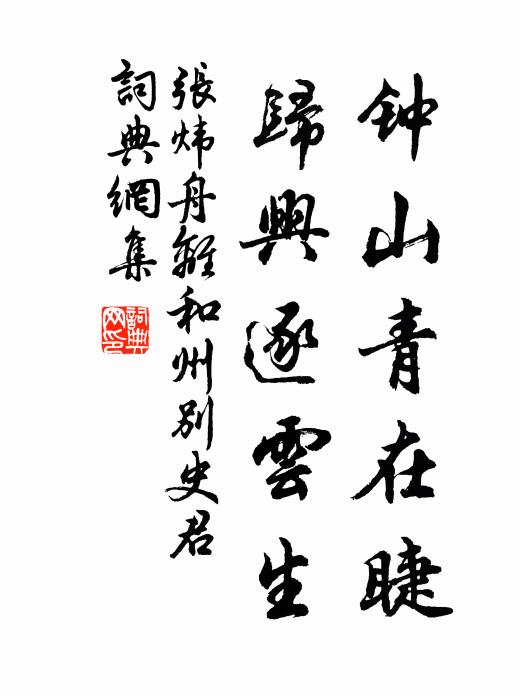 钟山青在睫
歸興逐雲生
張炜舟離和州別史君
詞典網集
詞典
网印